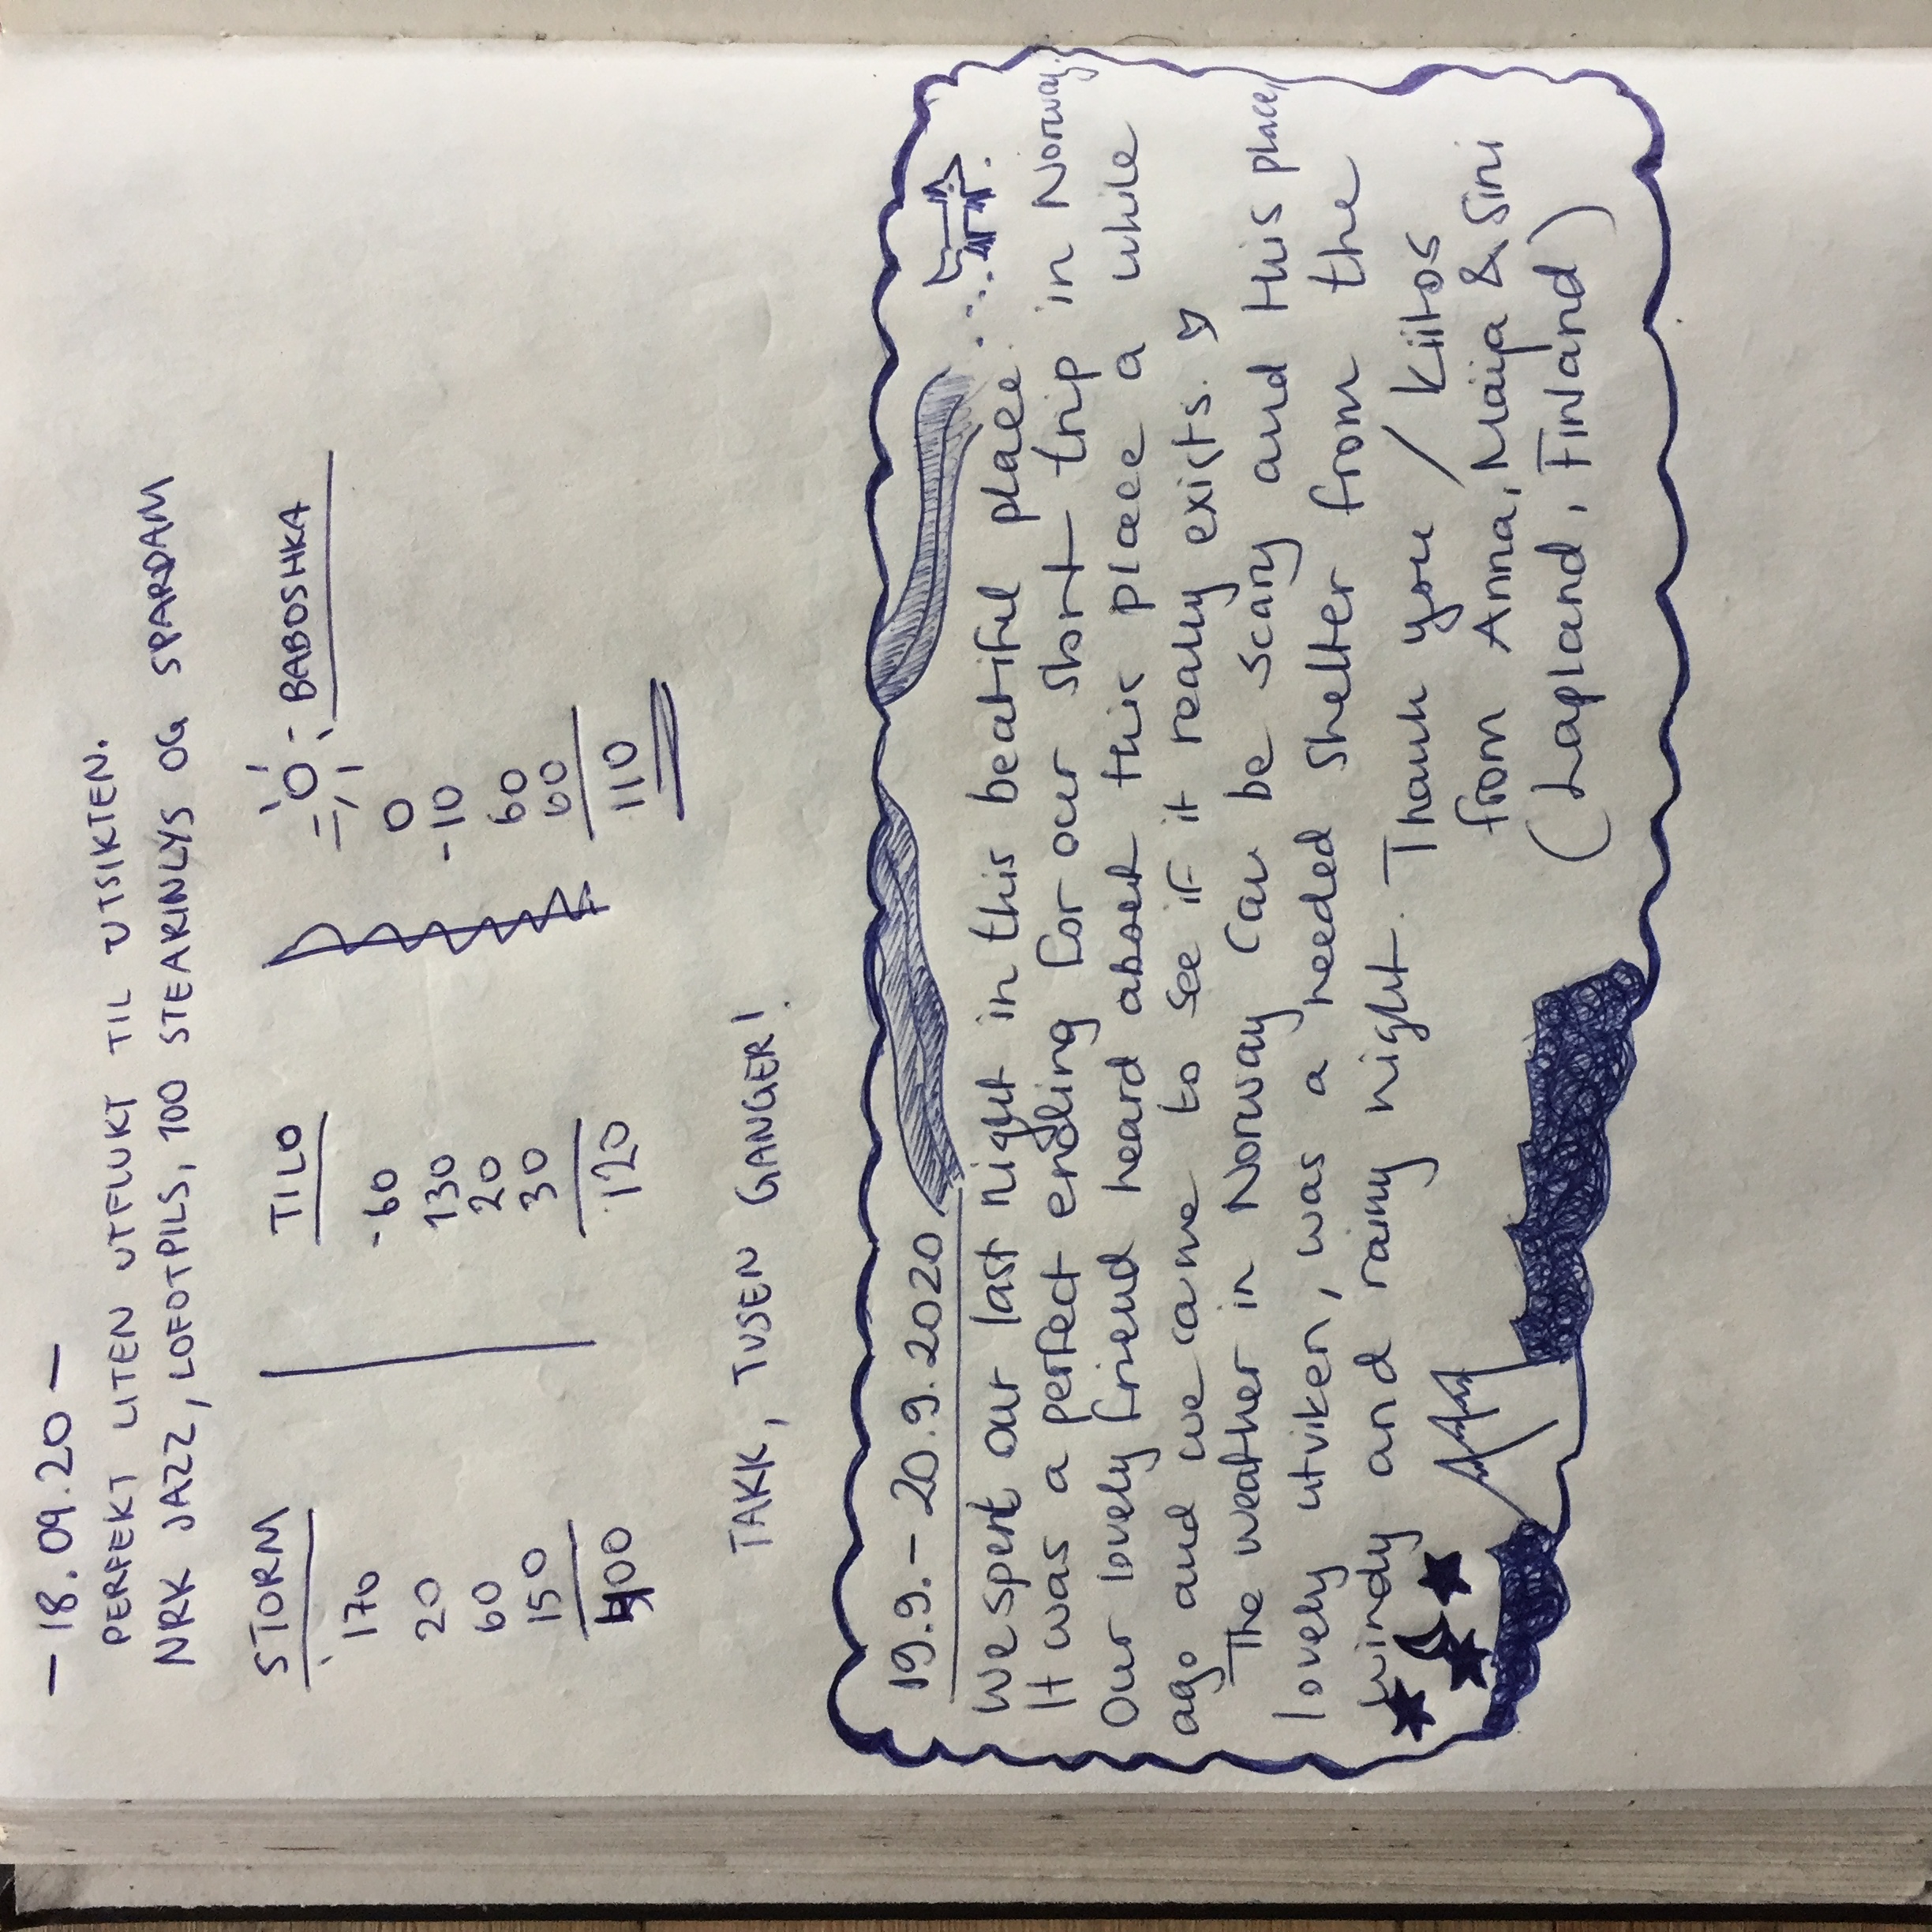 - 18.09.20 -
PERFEKT LITEN UTFLUKT TIL UTSIKTEN.
NRK JAZZ, LOFOTPILS, 100 STEARINLYS OG SPARDAM
STORM TILO BABOSHKA
170 -60 0
20 130 -10
60 20 60
150 30 60
400 120 110
TAKK, TUSEN GANGER!
19.9. - 20.9.2020
We spent our last night in this beatiful place.
It was a perfect ending for our short trip in Norway.
Our lovely friend heard about this place a while
ago and we came to see if it really exists.
The weather in Norway can be scary and this place,
lovely utviken, was a needed shelter from the
windy and rainy night. Thank you / Kiitos
from Anna, Maija & Sini
(Lapland, Finland)